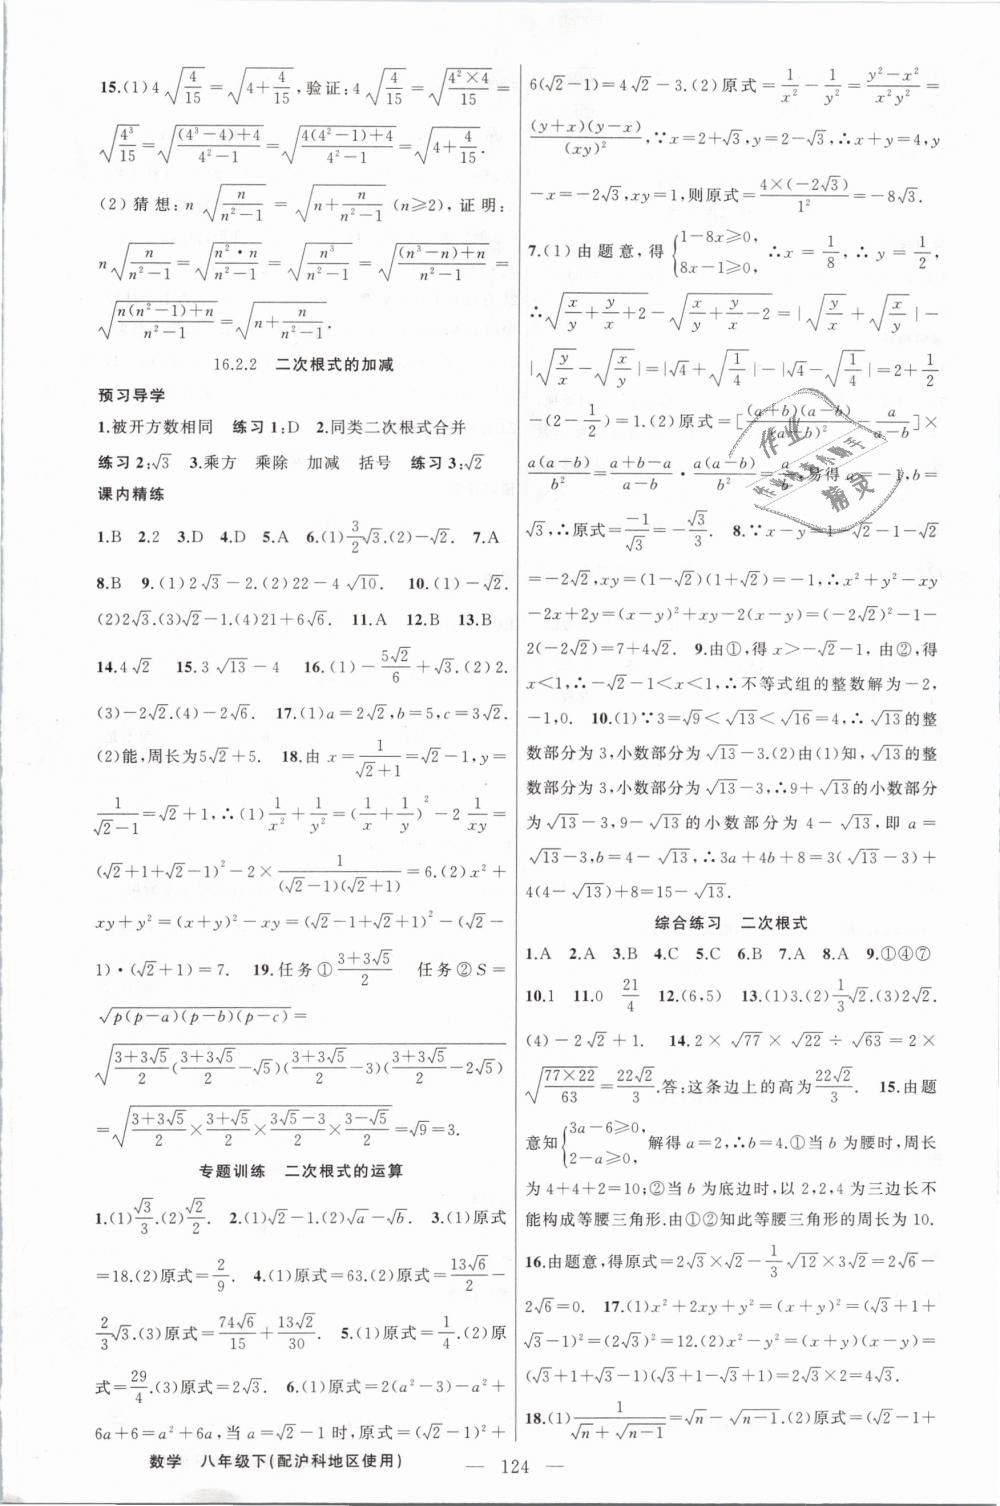 15.(1)4√(4/15)=√(4+4/15),验证:4√(4/15)=√(4²×4/15)=
√(4³/15)=√(((4³-4)+4)/(4²-1))=√((4(4²-1)+4)/(4²-1))=√(4+4/15).
(2)猜想:n√(n/(n²-1))=√(n+n/(n²-1))(n≥2),证明:
n√(n/(n²-1))=√(n²·n/(n²-1))=√(n³/(n²-1))=√(((n³-n)+n)/(n²-1))
=√((n(n²-1)+n)/(n²-1))=√(n+n/(n²-1)).
16.2.2 二次根式的加减
预习导学
1.被开方数相同 练习1:D 2.同类二次根式合并
练习2:√3 3.乘方 乘除 加减 括号 练习3:√2
课内精练
1.B 2.2 3.D 4.D 5.A 6.(1)3/2√3.(2)-√2. 7.A
8.B 9.(1)2√3-2.(2)22-4√10. 10.(1)-√2.
(2)2√3.(3)√2-1.(4)21+6√6. 11.A 12.B 13.B
14.4√2 15.3√13-4 16.(1)-5√2/6+√3.(2)2.
(3)-2√2.(4)-2√6. 17.(1)a=2√2,b=5,c=3√2.
(2)能,周长为5√2+5. 18.由x=1/(√2+1)=√2-1,y=
1/(√2-1)=√2+1,∴(1)1/x²+1/y²=(1/x+1/y)²-2 1/xy=
(√2+1+√2-1)²-2×1/((√2-1)(√2+1))=6.(2)x²+
xy+y²=(x+y)²-xy=(√2-1+√2+1)²-(√2-
1)·(√2+1)=7. 19.任务①(3+3√5)/2 任务②S=
√(p(p-a)(p-b)(p-c))=
√((3+3√5)/2((3+3√5)/2-√5)((3+3√5)/2-3)((3+3√5)/2-2√5))
=√((3+3√5)/2×(3+√5)/2×(3√5-3)/2×(3-√5)/2)=√9=3.
专题训练 二次根式的运算
1.(1)√3/3.(2)√2/2. 2.(1)√2-1.(2)√a-√b. 3.(1)原式
=18.(2)原式=2/9. 4.(1)原式=63.(2)原式=13√6/2-
2/3√3.(3)原式=74√6/15+13√2/30. 5.(1)原式=1/4.(2)原
式=29/4.(3)原式=2√3. 6.(1)原式=2(a²-3)-a²+
6a+6=a²+6a,当a=√2-1时,原式=(√2-1)²+
6(√2-1)=4√2-3.(2)原式=1/x²-1/y²=(y²-x²)/x²y²=
(y+x)(y-x)/(xy)²,∵x=2+√3,y=2-√3,∴x+y=4,y
-x=-2√3,xy=1,则原式=4×(-2√3)/1²=-8√3.
7.(1)由题意,得{1-8x≥0,8x-1≥0,∴x=1/8,∴y=1/2,
∴√(x/y+y/x+2)-√(x/y+y/x-2)=|√(x/y)+√(y/x)|-
|√(y/x)-√(x/y)|=|√4+√(1/4)|-|√4-√(1/4)|=2+1/2
-(2-1/2)=1.(2)原式=[(a+b)(a-b)/(a-b)²-a/(a-b)]×
a(a-b)/b²=(a+b-a)/(a-b)·a(a-b)/b²=a/b,易得a=-1,b=
√3,∴原式=-1/√3=-√3/3. 8.∵x-y=1-√2-1-√2
=-2√2,xy=(1-√2)(1+√2)=-1,∴x²+y²-xy
-2x+2y=(x-y)²+xy-2(x-y)=(-2√2)²-1-
2(-2√2)=7+4√2. 9.由①,得x>-√2-1,由②,得
x<1,∴-√2-1<x<1,∴不等式组的整数解为-2,
-1,0. 10.(1)∵3=√9<√13<√16=4,∴√13的整
数部分为3,小数部分为√13-3.(2)由(1)知,√13的整
数部分为3,小数部分为√13-3,∴9+√13的小数部分
为√13-3,9-√13的小数部分为4-√13,即a=
√13-3,b=4-√13,∴3a+4b+8=3(√13-3)+
4(4-√13)+8=15-√13.
综合练习 二次根式
1.A 2.A 3.B 4.C 5.C 6.B 7.A 8.A 9.①④⑦
10.1 11.0 21/4 12.(6,5) 13.(1)3.(2)1/3√2.(3)2√2.
(4)-2√2+1. 14.2×√77×√22÷√63=2×
√(77×22/63)=22√2/3.答:这条边上的高为22√2/3. 15.由题
意知{3a-6≥0,2-a≥0,解得a=2,∴b=4.①当b为腰时,周长
为4+4+2=10;②当b为底边时,以2,2,4为三边长不
能构成等腰三角形.由①②知此等腰三角形的周长为10.
16.由题意,得原式=2√3×√2-1/3√12×3√2=2√6-
2√6=0. 17.(1)x²+2xy+y²=(x+y)²=(√3+1+
√3-1)²=(2√3)²=12.(2)x²-y²=(x+y)(x-y)=
(√3+1+√3-1)(√3+1-√3+1)=2√3×2=4√3.
18.(1)1/(√n+√(n-1))=√n-√(n-1).(2)原式=(√2-1+
数学 八年级下(配沪科地区使用)
— 124 —
作业
精灵